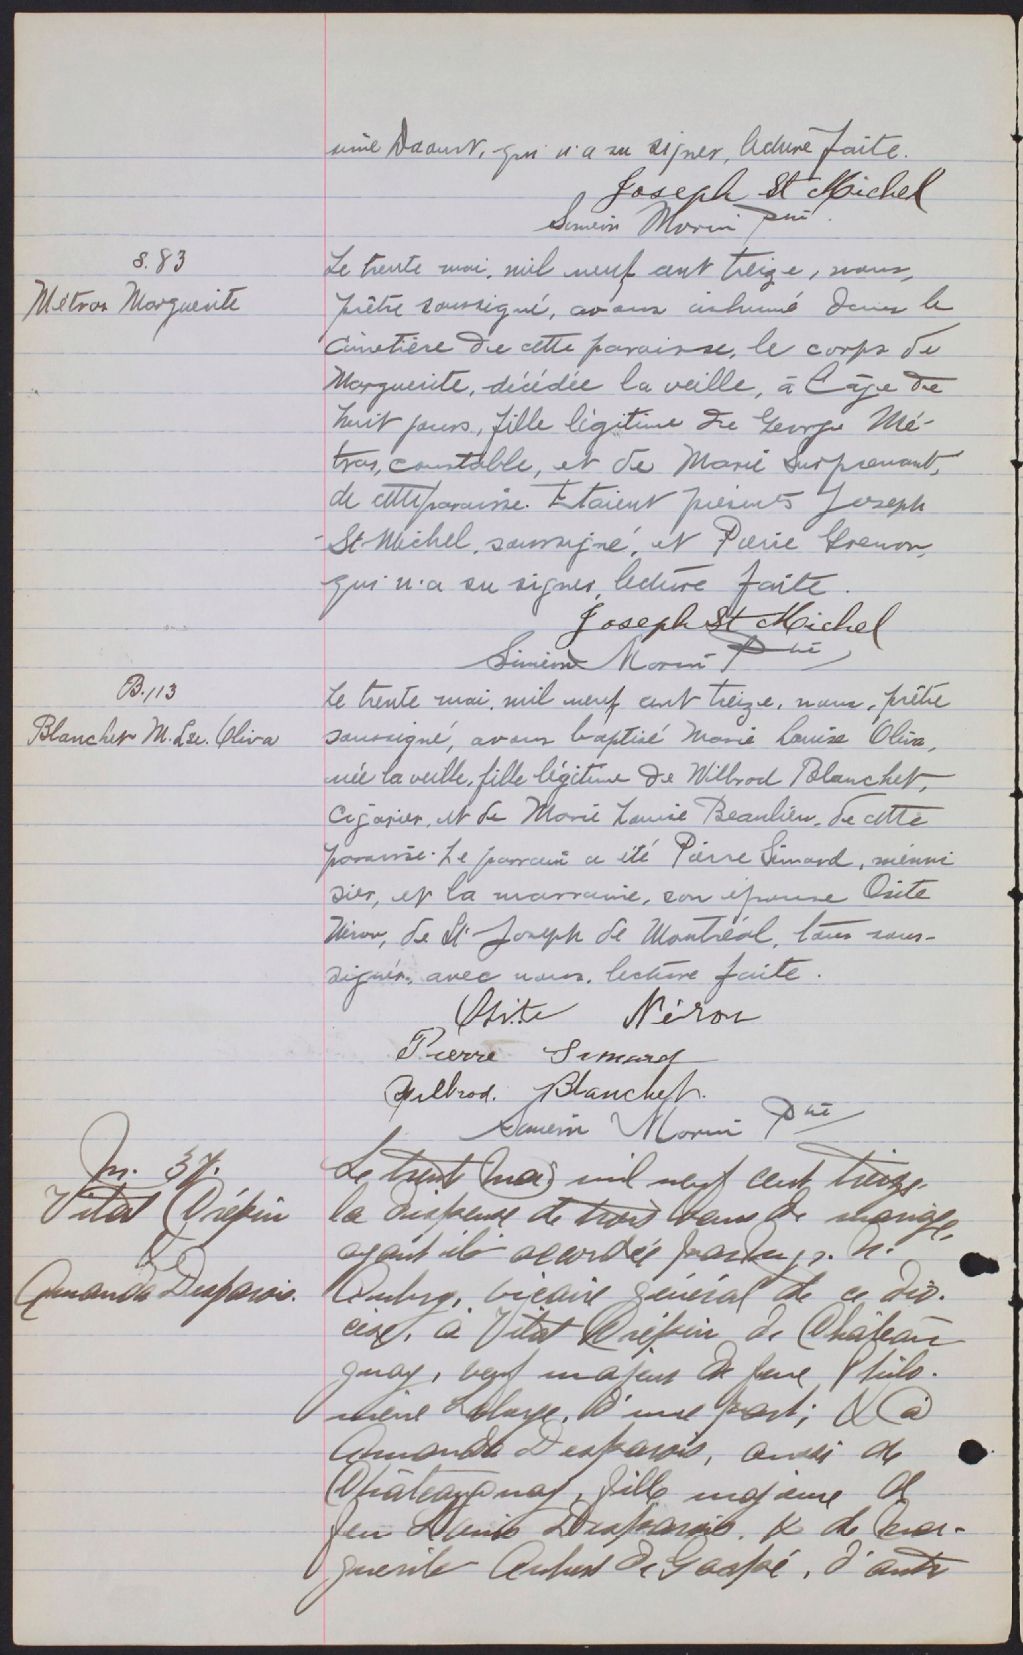 sime Daoust, qui n'a su signer, lecture faite.
Joseph St Michel
Siméon Morin Ptre
S. 83
Métras Marguerite
Le trente mai, mil neuf cent treize, nous,
prêtre soussigné, avons inhumé dans le
cimetière de cette paroisse, le corps de
Marguerite, décédée la veille, à l'âge de
huit jours, fille légitime de George Mé-
tras, constable, et de Marie Surprenant,
de cette paroisse. Etaient présents Joseph
St-Michel, soussigné, et Pierre Grenon,
qui n'a su signer, lecture faite.
Joseph St Michel
Siméon Morin Ptre
B. 113
Blanchet M. Lse. Oliva
Le trente mai, mil neuf cent treize, nous, prêtre
soussigné, avons baptisé Marie Louise Oliva,
née la veille, fille légitime de Wilbrod Blanchet,
cigarier, et de Marie Louise Beaulieu, de cette
paroisse. Le parrain a été Pierre Simard, menui
sier, et la marraine, son épouse Osite
Néron, de St Joseph de Montréal, tous sous-
signés, avec nous, lecture faite.
Osite Néron
Pierre Simard
Wilbrod. Blanchet.
Siméon Morin Ptre
M. 37.
Vital Crépin
&
Amanda Desparois.
Le trente mai mil neuf cent treize,
la dispense de trois bans de mariage,
ayant été accordée par
vicaire général de ce dio-
cèse, à Vital Crépin de Château
guay, veuf majeur de feue Philo-
mène Laberge, d'une part; & à
Amanda Desparois, aussi de
Châteauguay, fille majeure de
feu Louis Desparois, & de Mar-
guerite Aubert de Gaspé, d'autre